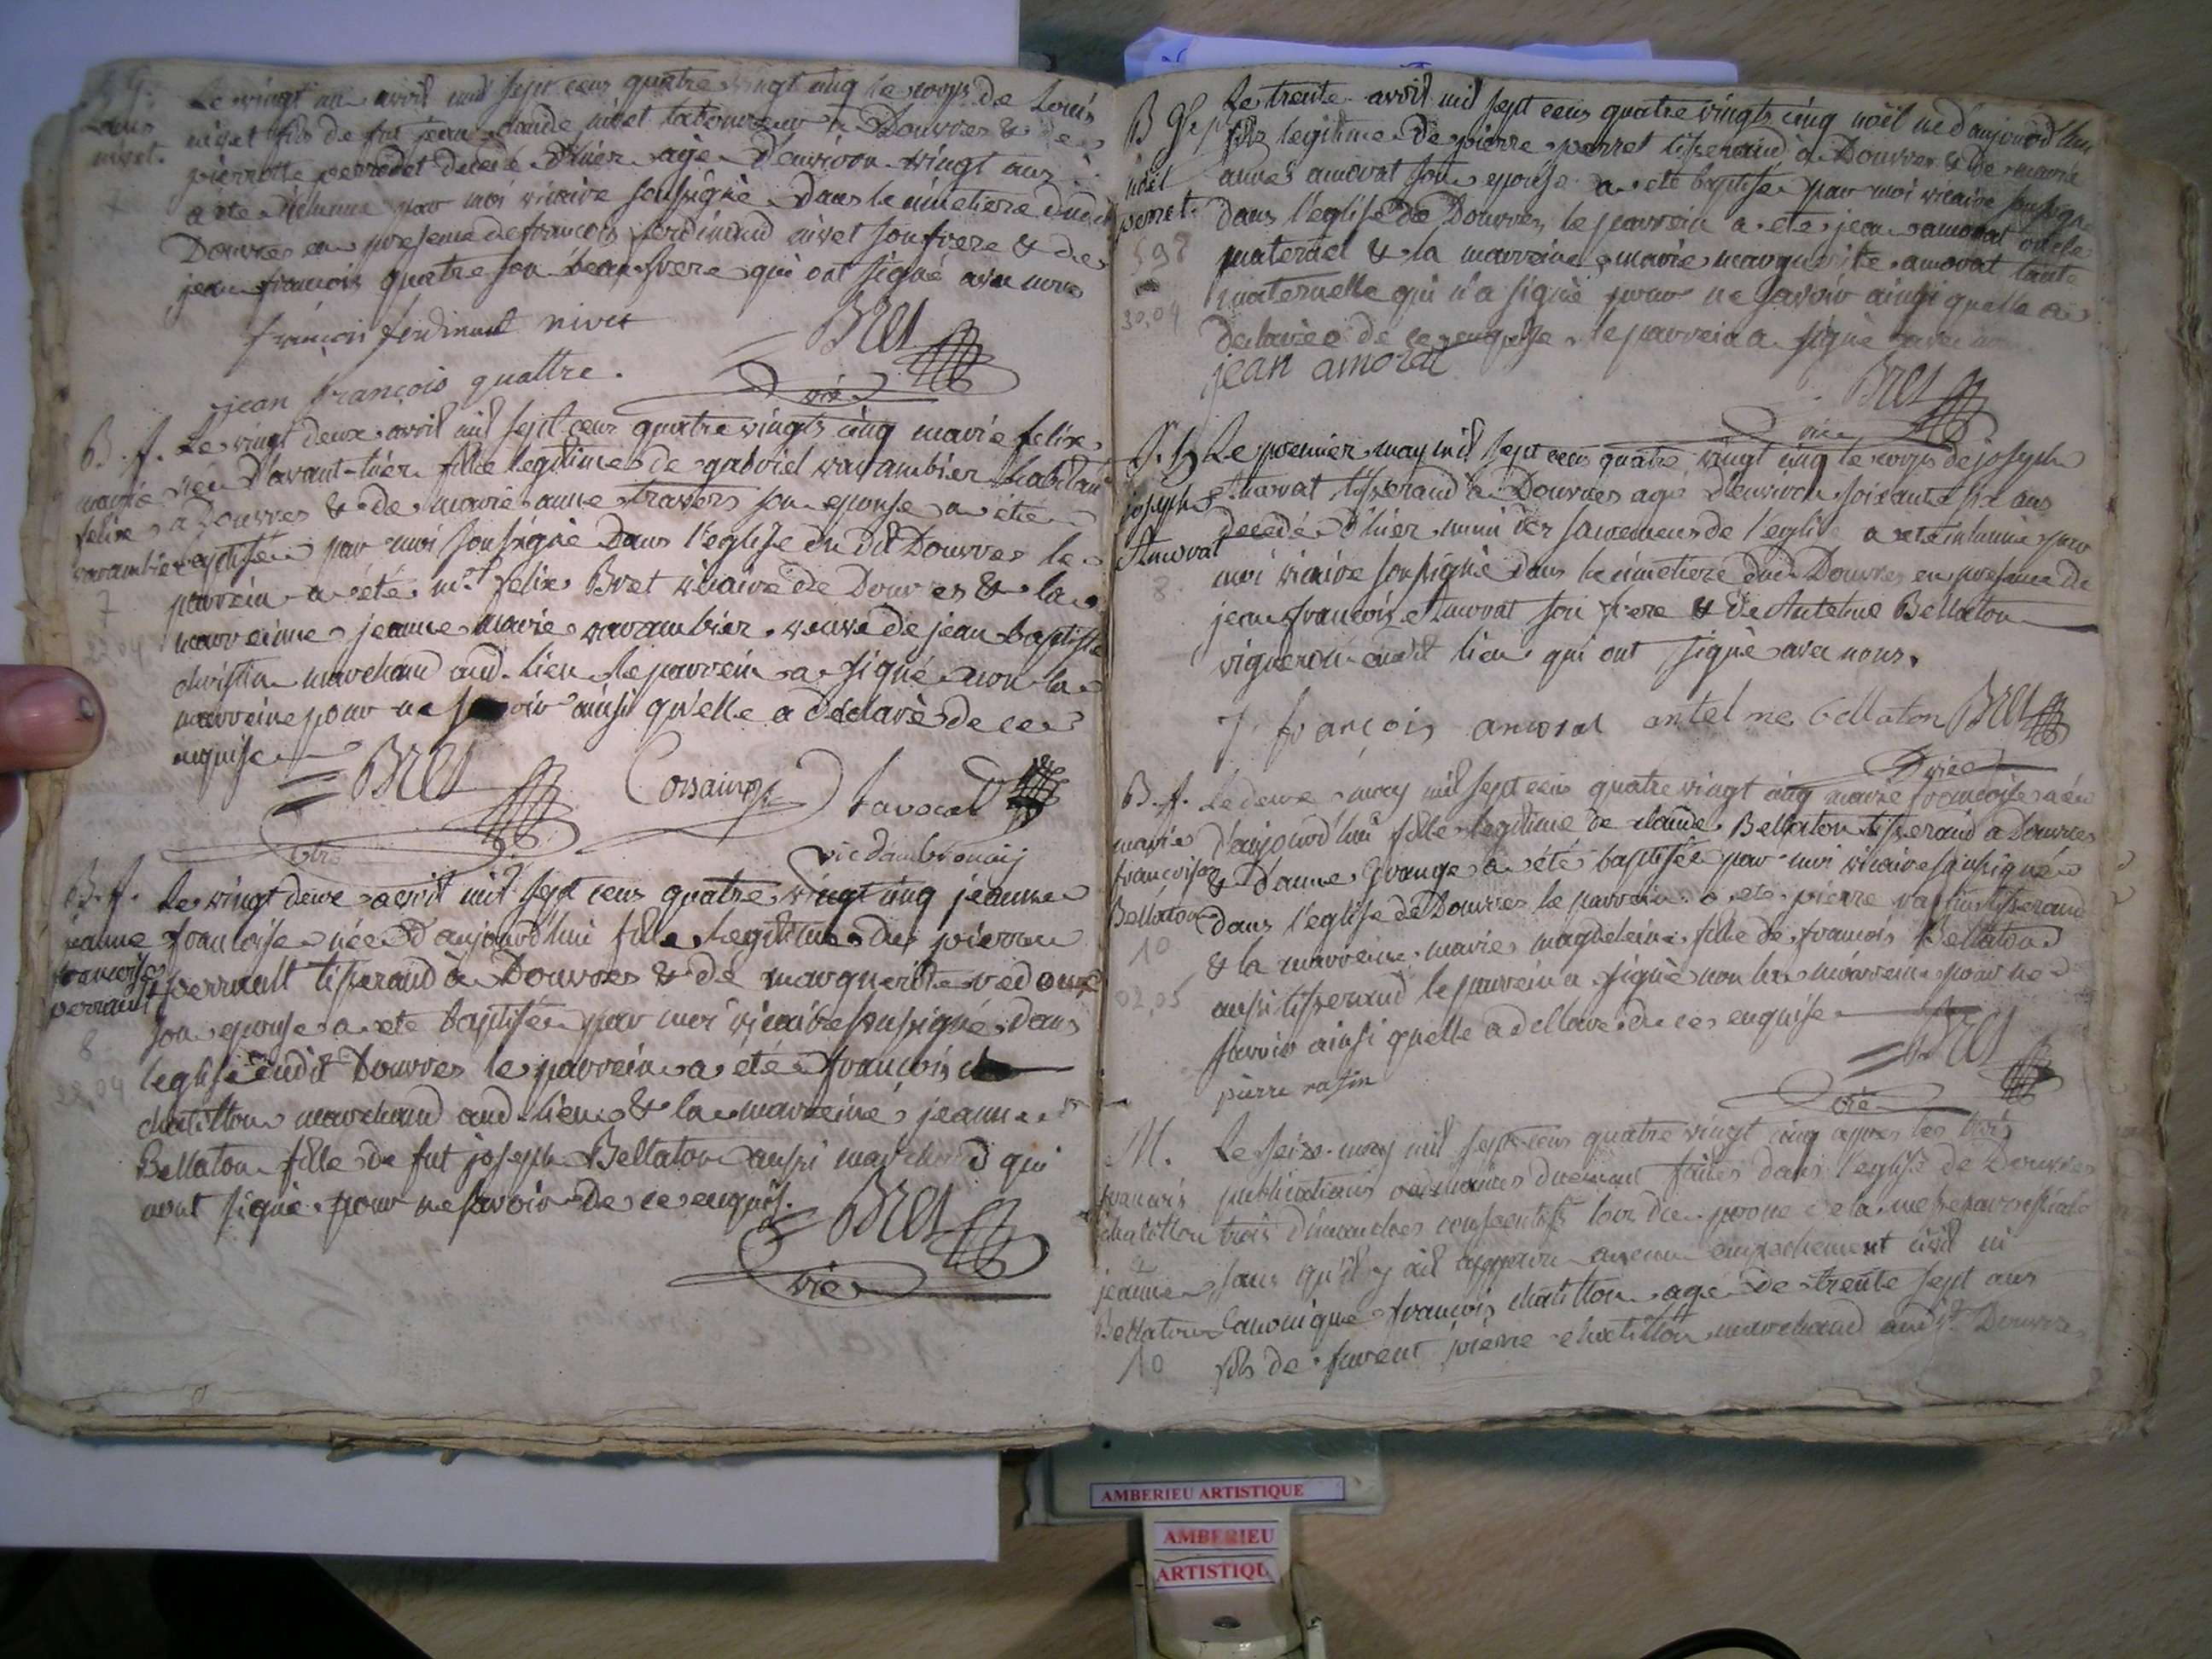 S. G.
Louis
nivet.
Le vingt un avril mil sept cens quatre vingt cinq le corps de Louis
nivet fils de fut jean claude nivet laboureur à Douvres & de
pierrotte perrodet decedé d'hier agé d'environ vingt ans
a été inhumé par moi vicaire soussigné dans le cimetiere dud
Douvres en presence de françois ferdinand nivet son frere & de
jean françois quatre son beau frere qui ont signé avec nous
françois ferdinent nivet
Bret
jean françois quattre.
vic
B. f.
marie
felixe
varambier
7
22,04
Le vingt deux avril mil sept cens quatre vingts cinq marie felixe
née d'avant-hier fille legitime de gabriel varambier habitant
a Douvres & de marie anne travers son epouse a été
baptisée par moi soussigné dans l'eglise du dit Douvres le
parrein a été mre felix Bret vicaire de Douvres & la
marreinne jeanne marie varambier veuve de jean baptiste
christin marchand aud. lieu le parrein a signé non la
marreine pour ne savoir ainsi qu'elle a déclaré de ce
enquise
Bret
vic d'ambronay
B. f.
jeanne
francoise
perrault
8
22,04
Le vingt deux avril mil sept cens quatre vingt cinq jeanne
francoise née d'aujourd'hui fille legitime de pierre
perrault tisserand à Douvres & de marguerite
son epouse a été baptisée par moi vicaire soussigné dans
l'eglise dudit Douvres le parrein a été francois
chatillon marchand aud. lieu & la marreine jeanne
Bellaton fille de fut joseph Bellaton aussi marchand qui
n'ont signé pour ne savoir de ce enquis.
Bret
vic
B. G.
noël
perret.
598
30,04
Le trente avril mil sept cens quatre vingts cinq noël né d'aujourd'hui
fils legitime de pierre perret tisserand à Douvres & de marie
anne amorat son epouse a été baptisé par moi vicaire soussigné
dans l'eglise de Douvres, le parrein a été jean amorat oncle
maternel & la marreine marie marguerite amorat tante
maternelle qui n'a signé pour ne savoir ainsi quelle a
declarée de ce enquise le parrein a signé avec nous
jean amorat
Bret
vic
S. h
joseph
Amorat
8.
Le premier may mil sept cens quatre vingt cinq le corps de joseph
Amorat tisserand a Douvres agé d'environ soixante six ans
decedé d'hier muni des sacremens de l'eglise a été inhumé par
moi vicaire soussigné dans le cimetiere dud Douvres en presence de
jean françois Amorat son frere & de Antelme Bellaton
vigneron audit lieu qui ont signé avec nous.
J. françois amorat antelme bellaton Bret
vic
B. f.
marie
francoise
Bellaton
10
02,05
Le deux may mil sept cens quatre vingt cinq marie francoise née
d'aujourd'hui fille legitime de claude Bellaton tisserand a Douvres
& d'anne grange a été baptisée par moi vicaire soussigné
dans l'eglise de Douvres le parrein a été pierre ratin tisserand
& la marreine marie magdeleine fille de francois Bellaton
aussi tisserand le parrein a signé non la marreine pour ne
savoir ainsi quelle a declaré de ce enquise
Bret
pierre ratin
vic
M.
francois
chatillon
&
jeanne
Bellaton
10
Le seize may mil sept cens quatre vingt cinq apres les trois
publications ordinaires duement faites dans l'eglise de Douvres
trois dimanches consecutifs lors du prone de la messe paroissiale
sans qu'il y ait apparu aucun empechement civil ni
canonique francois chatillon agé de trente sept ans
fils de furent pierre chatillon marchand audit Douvres
AMBERIEU ARTISTIQUE
AMBERIEU
ARTISTIQU